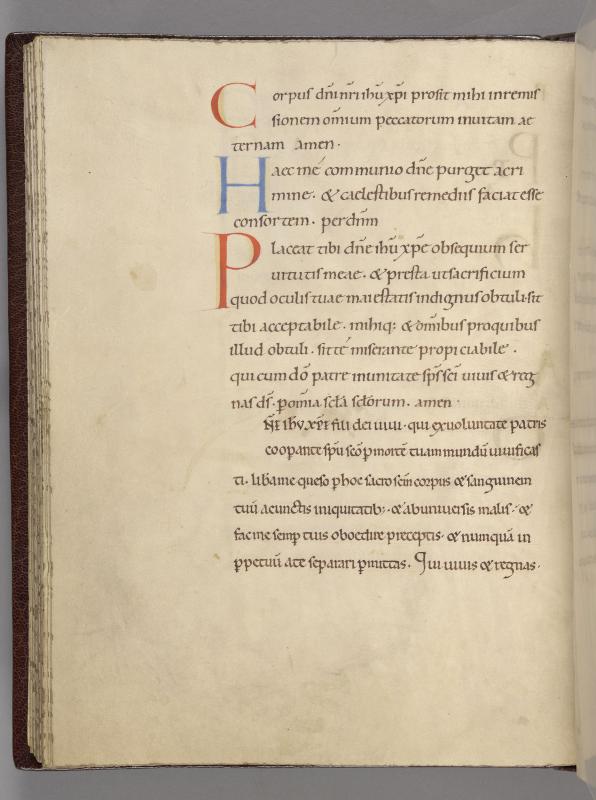 Corpus dñi nr̃i ihũ xp̃i prosit mihi in remis
sionem om̃ium peccatorum in uitam ae
ternam amen.
Haec mé communio dñe purget a cri
mine. & caelestibus remediis faciat esse
consortem. per dñm
Placeat tibi dñe ihũ xp̃e obsequium ser
uitutis meae. & presta ut sacrificium
quod oculis tuae maiestatis indignus obtuli. sit
tibi acceptabile. mihiq: & om̃ibus pro quibus
illud obtuli. sit té miserante propiciabile.
qui cum dõ patre in unitate sp̃s sc̃i uiuis & reg
nas ds̃. p om̃ia scłá scłórum. amen.
Dñe ihũ. xp̃e fili dei uiui. qui ex uoluntate patris
cooperante sp̃u sc̃o p mortẽ tuam mundũ uiuificas
ti. libera me queso p hoc sacrosc̃m corpus & sanguinem
tuũ a cunctis iniquitatib;. & ab uniuersis malis. &
fac me semp tuis oboedire preceptis. & numquã in
ppetuũ a te separari pmittas. Qui uiuis & regnas.